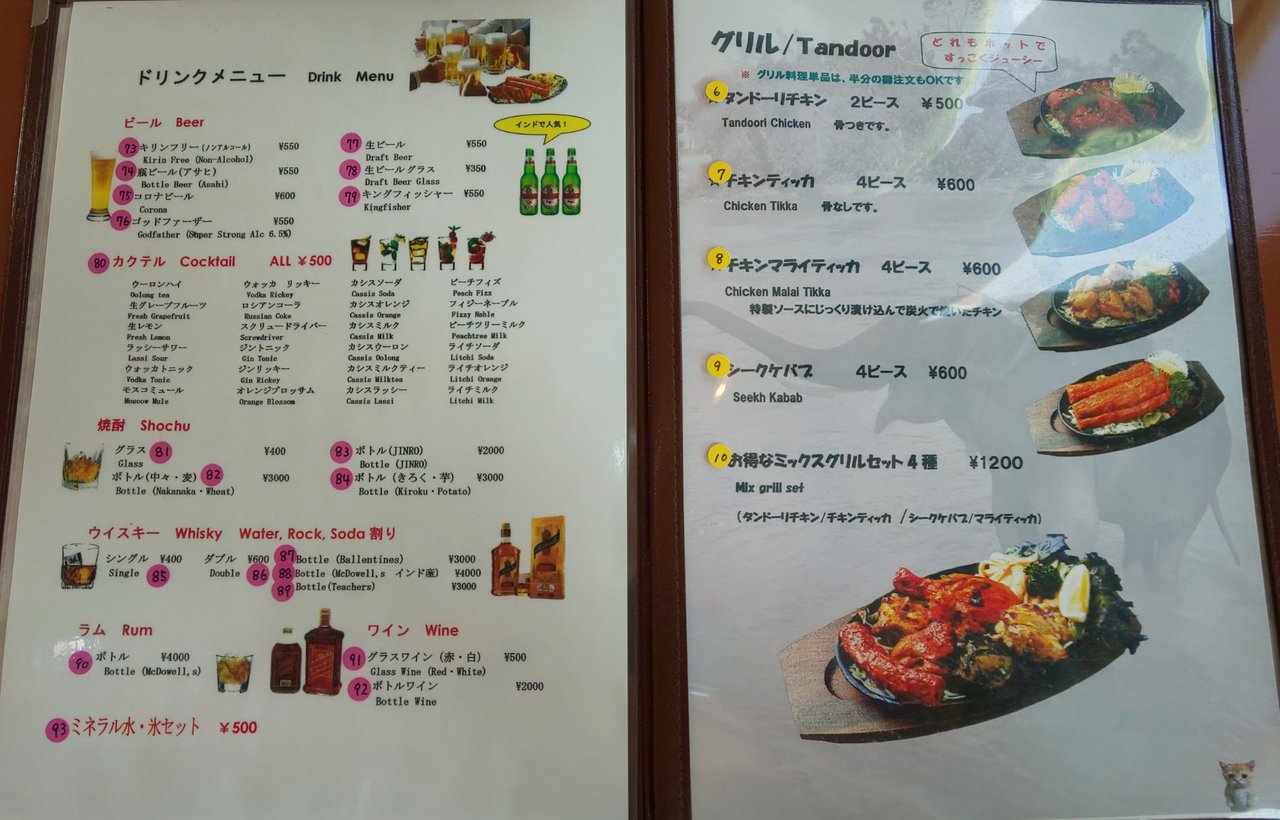 ドリンクメニュー Drink Menu
ビール Beer
インドで人気！
73 キリンフリー(ノンアルコール) ¥550
Kirin Free (Non-Alcohol)
74 瓶ビール(アサヒ) ¥550
Bottle Beer (Asahi)
75 コロナビール ¥600
Corona
76 ゴッドファーザー ¥550
Godfather (Super Strong Alc 6.5%)
77 生ビール ¥550
Draft Beer
78 生ビールグラス ¥350
Draft Beer Glass
79 キングフィッシャー ¥550
Kingfisher
80 カクテル Cocktail ALL ¥500
ウーロンハイ
Oolong tea
生グレープフルーツ
Fresh Grapefruit
生レモン
Fresh Lemon
ラッシーサワー
Lassi Sour
ウォッカトニック
Vodka Tonic
モスコミュール
Moscow Mule
ウォッカ リッキー
Vodka Rickey
ロシアンコーラ
Russian Coke
スクリュードライバー
Screwdriver
ジントニック
Gin Tonic
ジンリッキー
Gin Rickey
オレンジブロッサム
Orange Blossom
カシスソーダ
Cassis Soda
カシスオレンジ
Cassis Orange
カシスミルク
Cassis Milk
カシスウーロン
Cassis Oolong
カシスミルクティー
Cassis Milktea
カシスラッシー
Cassis Lassi
ピーチフィズ
Peach Fizz
フィジーネーブル
Fizzy Nable
ピーチツリーミルク
Peachtree Milk
ライチソーダ
Litchi Soda
ライチオレンジ
Litchi Orange
ライチミルク
Litchi Milk
焼酎 Shochu
グラス 81 ¥400
Glass
ボトル(中々・麦) 82 ¥3000
Bottle (Nakanaka・Wheat)
83 ボトル(JINRO) ¥2000
Bottle (JINRO)
84 ボトル (きろく・芋) ¥3000
Bottle (Kiroku・Potato)
ウイスキー Whisky Water, Rock, Soda 割り
シングル ¥400 ダブル ¥600
Single 85 Double 86
87 Bottle (Ballentines) ¥3000
88 Bottle (McDowell,s インド産) ¥4000
89 Bottle(Teachers) ¥3000
ラム Rum
90 ボトル ¥4000
Bottle (McDowell,s)
ワイン Wine
91 グラスワイン (赤・白) ¥500
Glass Wine (Red・White)
92 ボトルワイン ¥2000
Bottle Wine
93 ミネラル水・氷セット ¥500
グリル/Tandoor
どれもホットで
すっごくジューシー
※ グリル料理単品は、半分の御注文もOKです
6 タンドーリチキン 2ピース ¥500
Tandoori Chicken 骨つきです。
7 チキンティッカ 4ピース ¥600
Chicken Tikka 骨なしです。
8 チキンマライティッカ 4ピース ¥600
Chicken Malai Tikka
特製ソースにじっくり漬け込んで炭火で焼いたチキン
9 シークケバブ 4ピース ¥600
Seekh Kabab
10 お得なミックスグリルセット4種 ¥1200
Mix grill set
(タンドーリチキン/チキンティッカ /シークケバブ/マライティッカ)